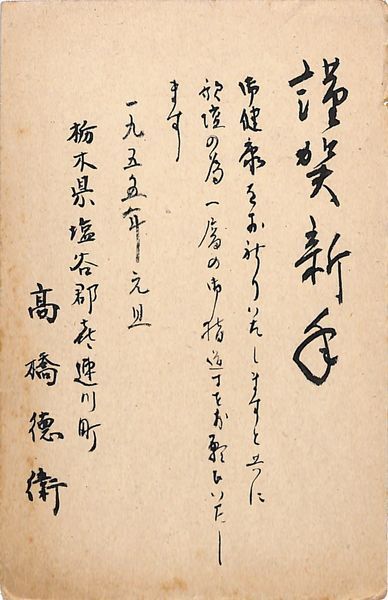 謹賀新年
御健康をお祈りいたしますと共に
の為一層の御指導をお願ひいたし
ます
一九五五年元旦
栃木県塩谷郡喜連川町
高橋徳衛